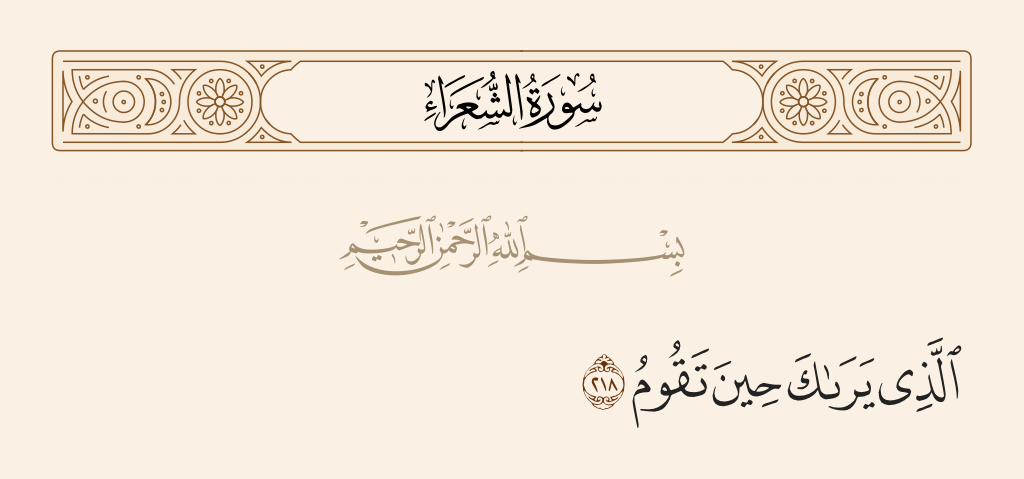 سُورَةُ الشُّعَرَاءِ
بِسْمِ ٱللَّهِ ٱلرَّحْمَٰنِ ٱلرَّحِيمِ
ٱلَّذِى يَرَىٰكَ حِينَ تَقُومُ ٢١٨